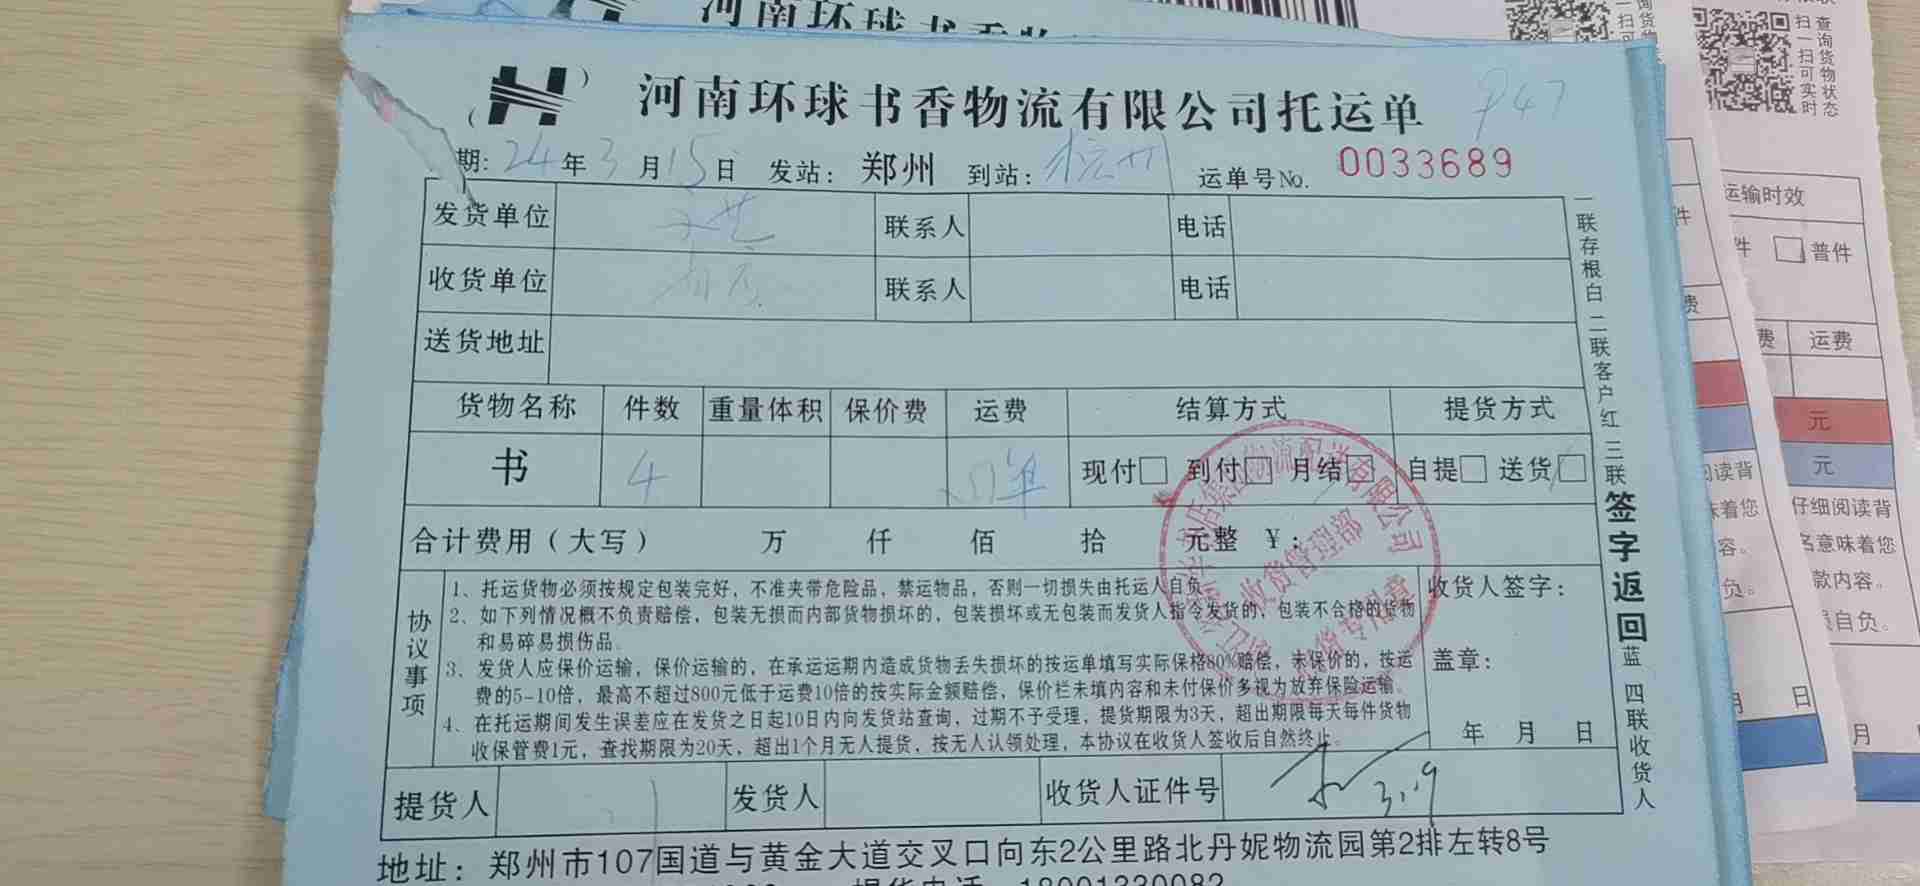 河南环球书香物流有限公司托运单
期: 24年3月15日 发站: 郑州 到站: 杭州 运单号No. 0033689
发货单位 联系人 电话
收货单位 联系人 电话
送货地址
货物名称 件数 重量体积 保价费 运费 结算方式 提货方式
书 4 现付□ 到付□ 月结□ 自提□ 送货□
合计费用（大写） 万 仟 佰 拾 元整 ￥:
协议事项
1、托运货物必须按规定包装完好，不准夹带危险品，禁运物品，否则一切损失由托运人自负。
2、如下列情况概不负责赔偿，包装无损而内部货物损坏的，包装损坏或无包装而发货人指令发货的，包装不合格的货物
和易碎易损伤品。
3、发货人应保价运输，保价运输的，在承运运期内造成货物丢失损坏的按运单填写实际保格80%赔偿，未保价的，按运
费的5-10倍，最高不超过800元低于运费10倍的按实际金额赔偿，保价栏未填内容和未付保价多视为放弃保险运输。
4、在托运期间发生误差应在发货之日起10日内向发货站查询，过期不予受理，提货期限为3天，超出期限每天每件货物
收保管费1元，查找期限为20天，超出1个月无人提货，按无人认领处理，本协议在收货人签收后自然终止。
收货人签字:
盖章:
年 月 日
提货人 发货人 收货人证件号 3.19
地址: 郑州市107国道与黄金大道交叉口向东2公里路北丹妮物流园第2排左转8号
一联存根白 二联客户红 三联签字返回蓝 四联收货人
收货管理部
扫一扫可实时
查询货物状态
运输时效
□普件
运费
元
元
仔细阅读背
名意味着您
款内容。
自负。
日
月